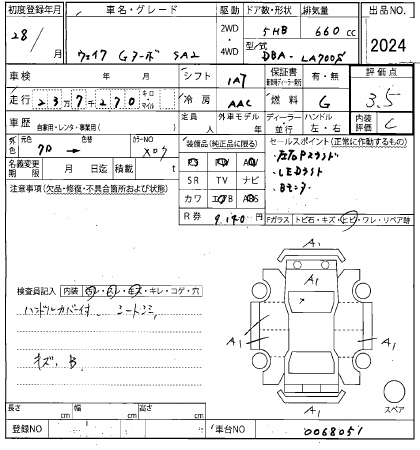 初度登録年月 車名・グレード 駆動 ドア数・形状 排気量 出品NO.
28/ 月 ウェイク Gターボ SA2 2WD・4WD 5HB 660 cc 2024
型式 DBA-LA700S
車検 年 月 シフト IAT 保証書 有・無 評価点
走行 237270 キロ マイル 冷房 AAC 燃料 G 3.5
車歴 自家用・レンタ・事業用( ) 定員 人 外車モデル 年 ディーラー・並行 ハンドル 左・右 内装評価 C
外色 元色 クロ → 色替 カラーNO X07 装備品(純正品に限る) セールスポイント(正常に作動するもの)
名義変更期限 月 日迄 積載 t PS PW
SR TV ナビ LEDライト
注意事項(欠品・修復・不具合箇所および状態) カワ エアB ABS
R券 9,140 円 Fガラス トビ石・キズ・ヒビ・ワレ・リペア跡
A1
検査員記入 内装 汚レ・スレ・キズ・キレ・コゲ・穴
ハンドルカバー付、シートシミ
A1 A1
キズ、B
A1
スペア
長さ cm 幅 cm 高さ cm
登録NO 車台NO 0068051